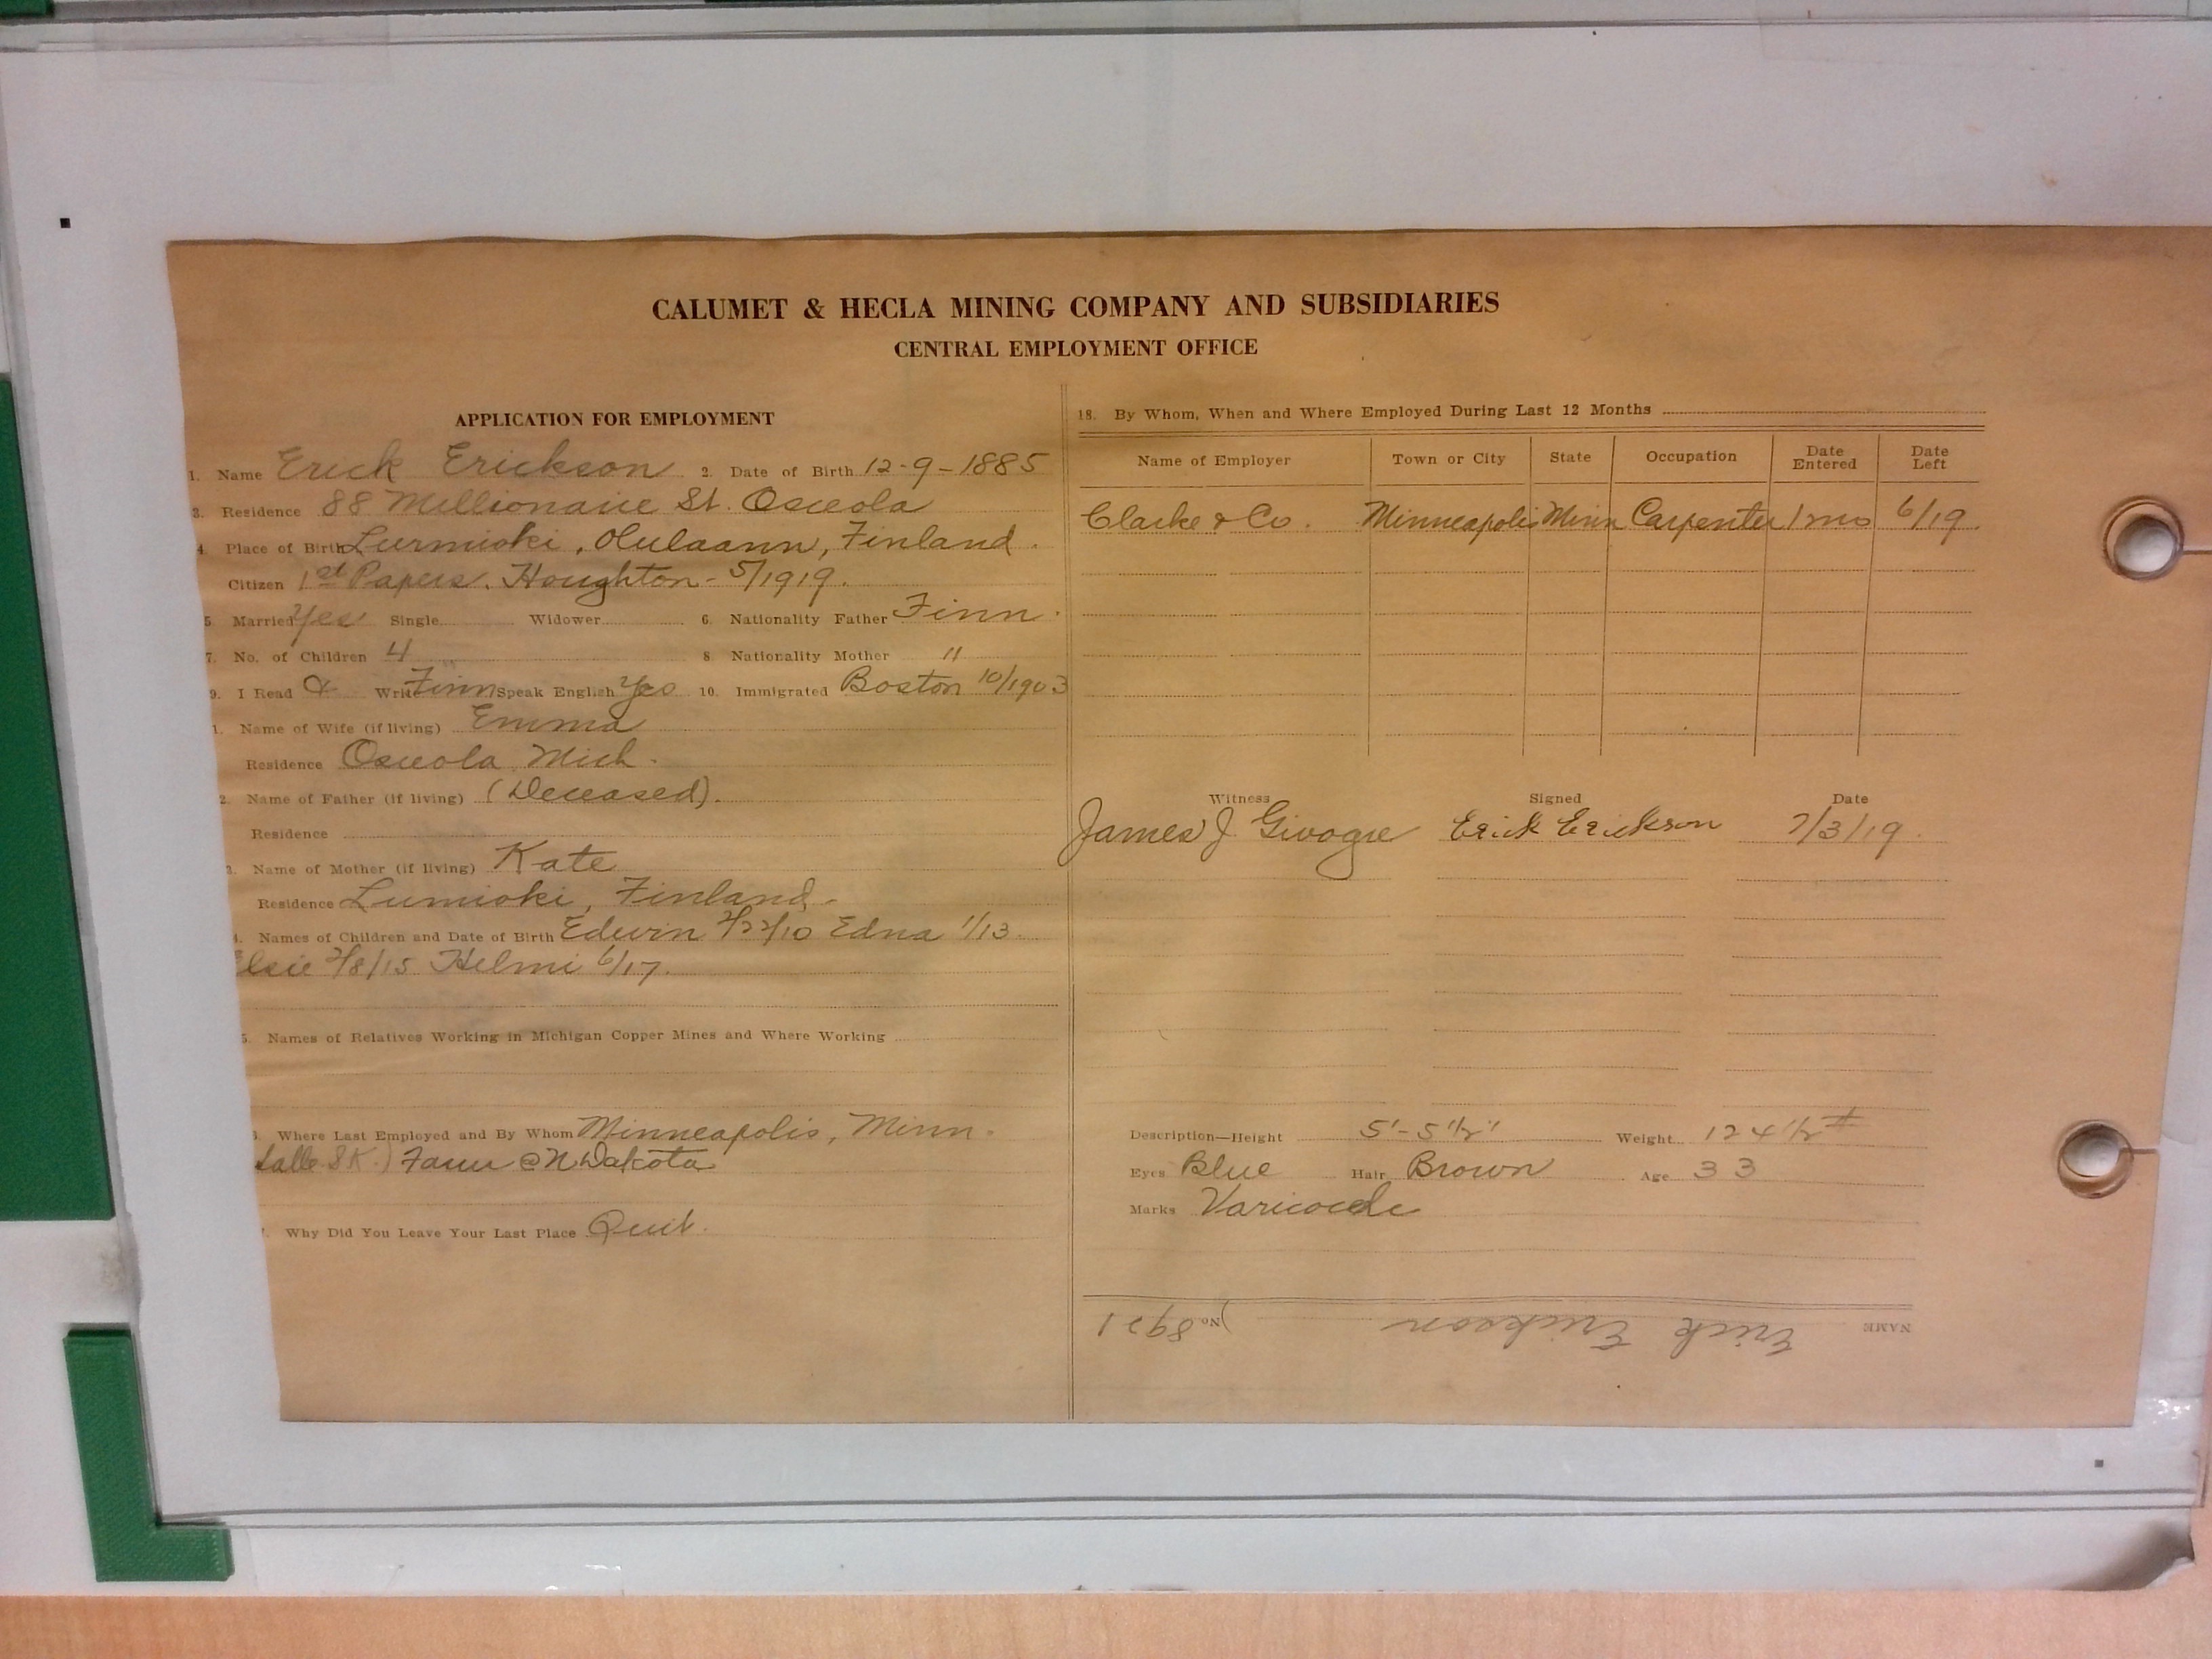 CALUMET & HECLA MINING COMPANY AND SUBSIDIARIES
CENTRAL EMPLOYMENT OFFICE
APPLICATION FOR EMPLOYMENT
1. Name Erick Erickson 2. Date of Birth 12-9-1885
3. Residence 88 Millionaire St. Osceola
4. Place of Birth Lurmioki, Olulaann, Finland.
Citizen 1st Papers. Houghton - 5/1919.
5. Married Yes Single Widower 6. Nationality Father Finn.
7. No. of Children 4 8. Nationality Mother "
9. I Read & Write Finn Speak English Yes 10. Immigrated Boston 10/1903
1. Name of Wife (if living) Emma
Residence Osceola Mich.
2. Name of Father (if living) (Deceased).
Residence
3. Name of Mother (if living) Kate
Residence Lumioki, Finland.
4. Names of Children and Date of Birth Edwin 2/22/10 Edna 1/13
Elsie 2/8/15 Helmi 6/17.
5. Names of Relatives Working in Michigan Copper Mines and Where Working
6. Where Last Employed and By Whom Minneapolis, Minn.
Farm @ N Dakota
Why Did You Leave Your Last Place Quit.
18. By Whom, When and Where Employed During Last 12 Months
Name of Employer Town or City State Occupation Date Entered Date Left
Clarke & Co. Minneapolis Minn Carpenter 1 mo 6/19.
Witness Signed Date
James J Givogre Erick Erickson 7/3/19.
Description—Height 5'-5 1/2" Weight 124 1/2 #
Eyes Blue Hair Brown Age 33
Marks Varicocele
NAME Erick Erickson No. 8921